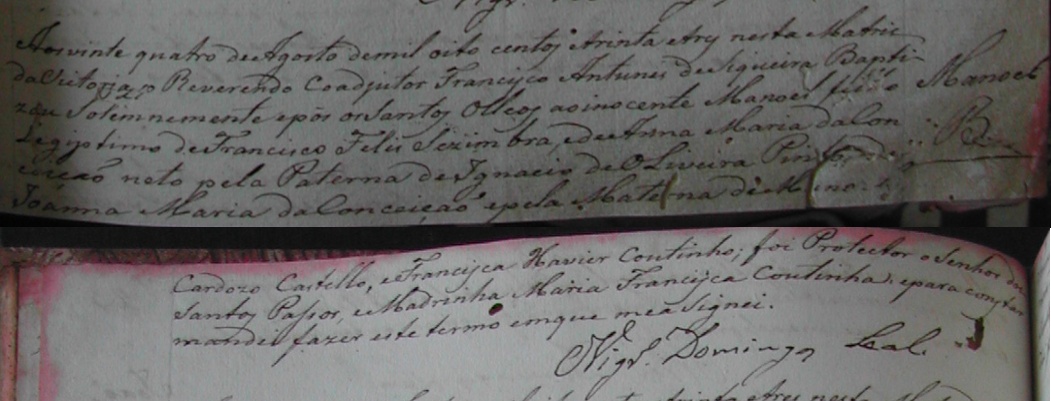 Aos vinte quatro de Agosto de mil oito centos e trinta e tres nesta Matris
da Victoria, o Reverendo Coadjutor Francisco Antunes de Siqueira Bapti
zou Solemnemente e pôs os Santos Olleos ao inocente Manoel filho Manoel
Legiptimo de Francisco Felis Sezimbra, e de Anna Maria da Con
ceição neto pela Paterna de Ignacio de Oliveira Pinto, e de
Joanna Maria da Conceição e pela Materna de
Cardozo Castello, e Francisca Xavier Coutinho; foi Protector o Senhor dos
Santos Passos, e Madrinha Maria Francisca Coutinha; e para constar
mandei fazer este termo em que me asignei.
Vigr.º Domingos Leal